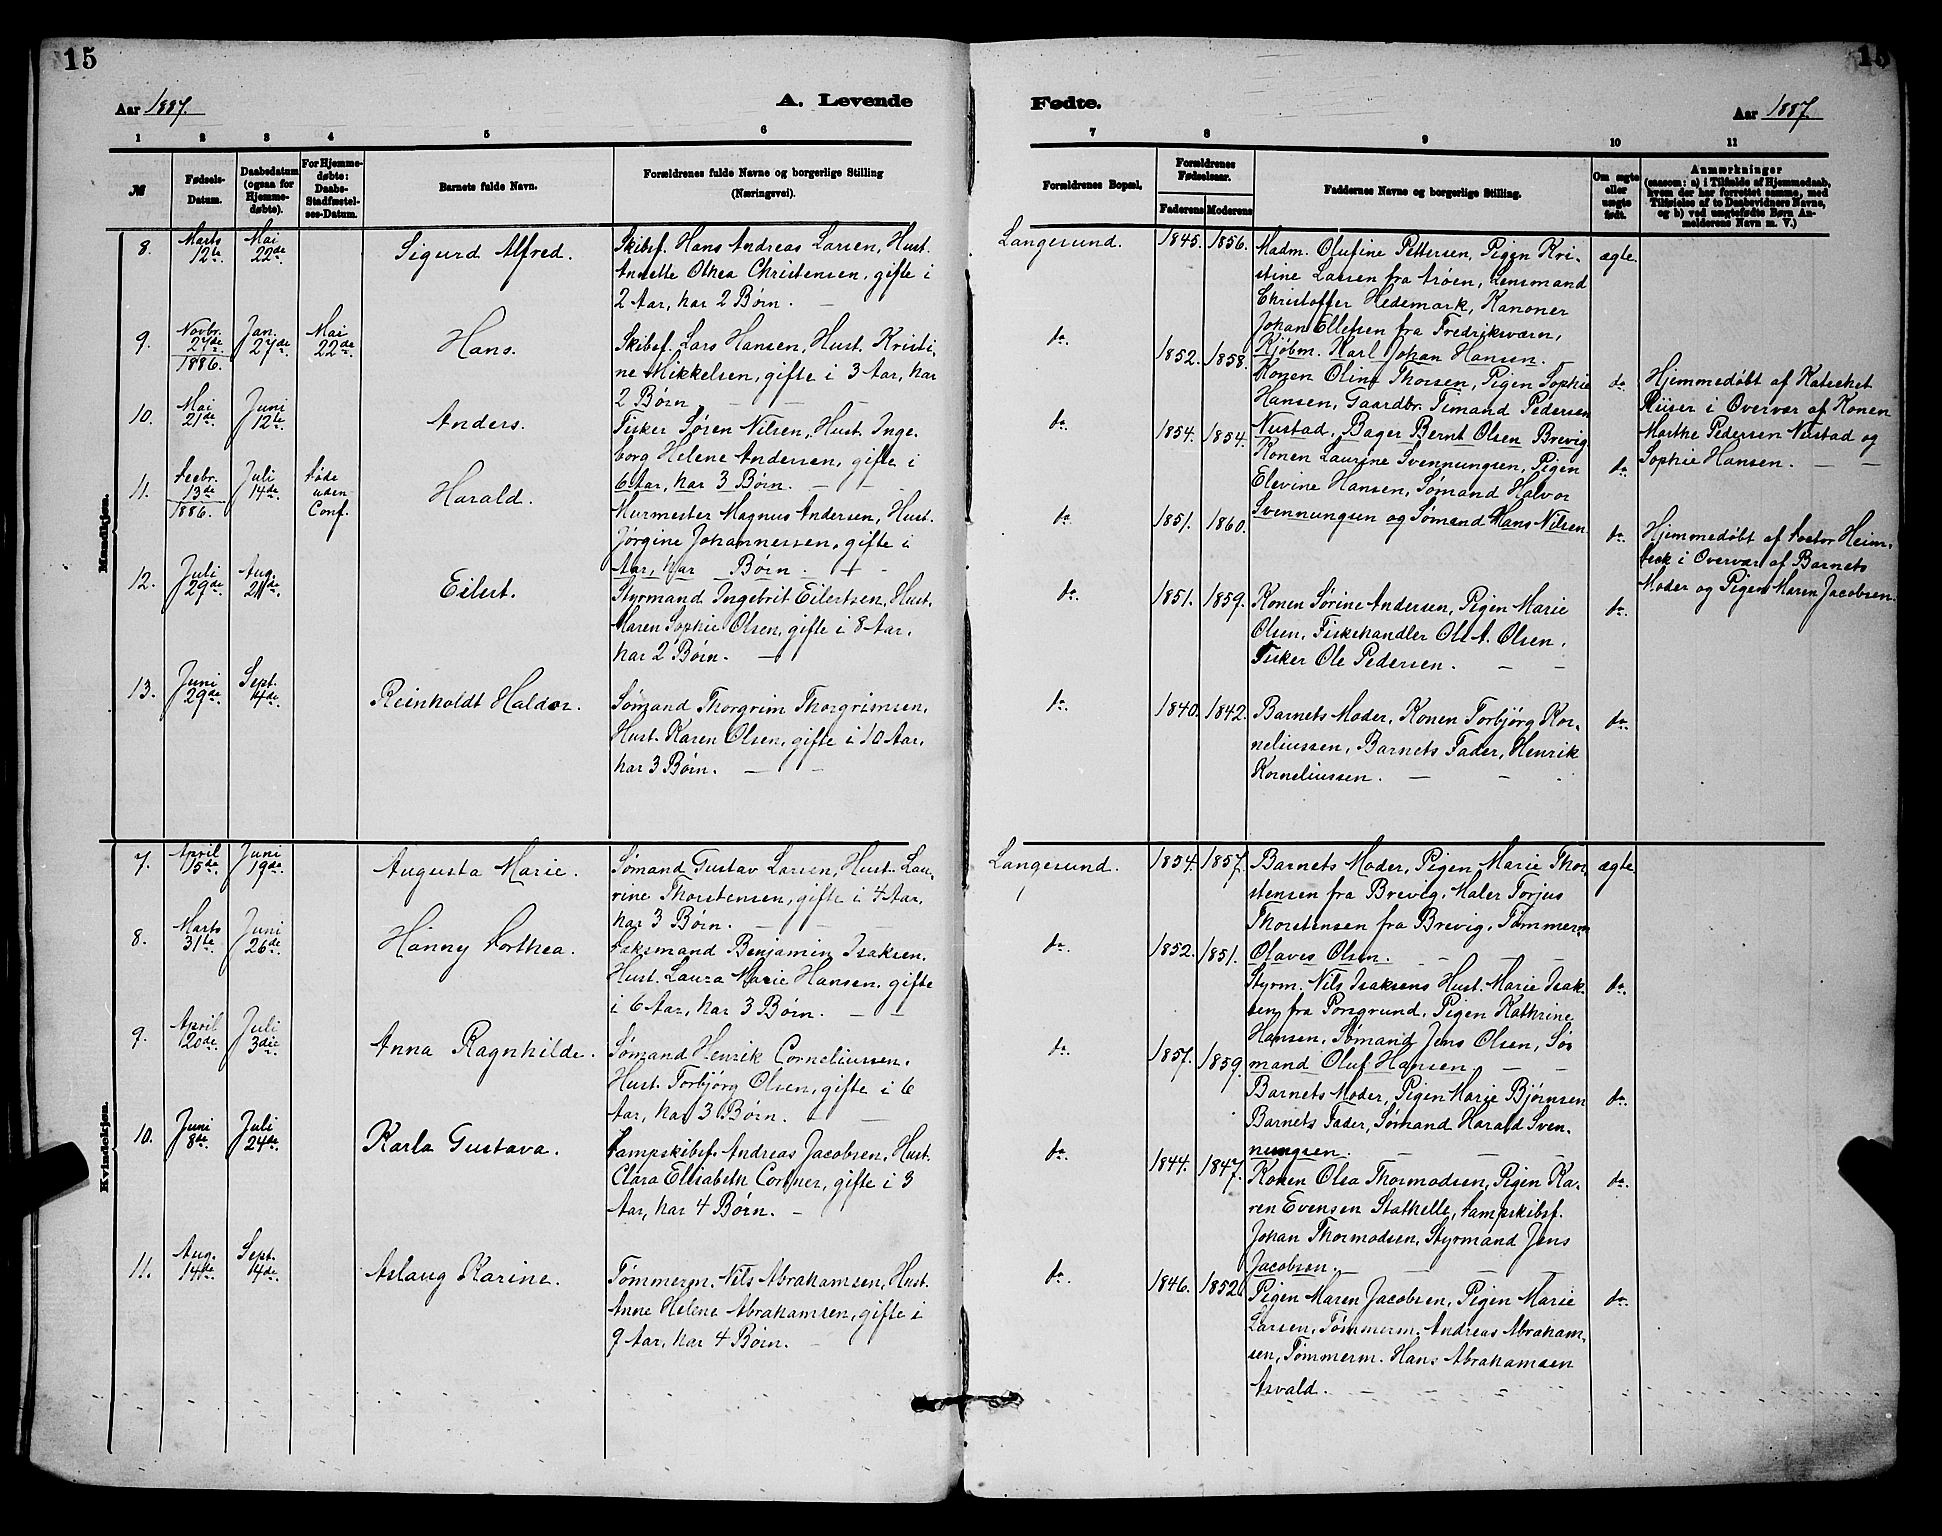 15
15
Aar 1887.
A. Levende
Fødte.
Aar 1887.
1 2 3 4 5 6
7 8 9 10 11
№
Fødsels-
Datum.
Daabsdatum
(ogsaa for
Hjemme-
døbte).
For Hjemme-
døbte:
Daabs-
Stadfæstel-
ses-Datum.
Barnets fulde Navn.
Forældrenes fulde Navne og borgerlige Stilling
(Næringsvei).
Forældrenes Bopæl.
Forældrenes
Fødselsaar.
Faderens Moderens
Faddernes Navne og borgerlige Stilling.
Om ægte
eller
uægte
født.
Anmærkninger
(saasom: a) i Tilfælde af Hjemmedaab,
hvem der har forrettet samme, med
Tilføielse af to Daabsvidners Navne,
og b) ved uægtefødte Børn An-
melderens Navn m. V.)
Mandkjøn.
8.
Marts
12te
Mai
22de
Sigurd Alfred.
Skibsf. Hans Andreas Larsen, Hust.
Annette Othea Christensen, gifte i
2 Aar, har 2 Børn.
Langesund.
1845. 1856.
Madm. Olufine Pettersen, Pigen Kri-
stine Larsen fra Arøen, Lensmand
Christoffer Hedemark, Kanoner
Johan Ellefsen fra Fredriksværn,
Kjøbm. Karl Johan Hansen.
ægte
9.
Novbr.
27de
1886.
Jan.
27de
Mai
22de
Hans.
Skibsf. Lars Hansen, Hust. Kristi-
ne Mikkelsen, gifte i 3 Aar, har
2 Børn
do.
1852. 1858.
Konen Oline Thorsen, Pigen Sophie
Hansen, Gaardbr. Timand Pedersen
Nustad, Bager Bernt Olsen Brevig
do.
Hjemmedøbt af Kateket
Riiser i Overvær af Konen
Marthe Pedersen Nustad og
Sophie Hansen.
10.
Mai
21de
Juni
12te
Anders.
Fisker Søren Nilsen, Hust. Inge-
borg Helene Andersen, gifte i
6 Aar, har 3 Børn.
do.
1854. 1854.
Konen Laurine Svennungsen, Pigen
Elevine Hansen, Sømand Halvor
Svennungsen og Sømand Hans Nilsen
do.
11.
Decbr.
13de
1886.
Juli
14de
Døde
uden
Conf.
Harald.
Murmester Magnus Andersen, Hust.
Jørgine Johannessen, gifte i
Aar, har Børn.
do.
1851. 1860.
do.
Hjemmedøbt af Doctor Heim-
beck i Overvær af Barnets
Moder og Pigen Maren Jacobsen.
12.
Juli
29de
Aug.
21de
Eilert.
Styrmand Ingebrit Eilertsen, Hust.
Maren Sophie Olsen, gifte i 8 Aar,
har 2 Børn.
do.
1851. 1859.
Konen Sørine Andersen, Pigen Marie
Olsen, Fiskehandler Ole A. Olsen,
Fisker Ole Pedersen.
do.
13.
Juni
29de
Sept.
4de
Reinholdt Haldor.
Sømand Thorgrim Thorgrimsen,
Hust. Karen Olsen, gifte i 16 Aar,
har 3 Børn.
do.
1840. 1842.
Barnets Moder, Konen Torbjørg Kor-
neliussen, Barnets Fader, Henrik
Korneliussen.
do.
Kvindekjøn.
7.
April
15de
Juni
19de
Augusta Marie.
Sømand Gustav Larsen, Hust. Lau-
rine Thorstensen, gifte i 4 Aar,
har 3 Børn.
Langesund.
1854. 1857.
Barnets Moder, Pigen Marie Thor-
stensen fra Brevig, Maler Torjus
Thorstensen fra Brevig, Tømmerm
Olaves Olsen.
ægte
8.
Marts
31te
Juni
26de
Hanny Dorthea.
Daksmand Benjamin Isaksen,
Hust. Laura Marie Hansen, gifte
i 6 Aar, har 3 Børn.
do.
1852. 1851.
Styrm. Nils Isaksens Hust. Marie Isak-
sen fra Porsgrund, Pigen Kathrine
Hansen, Sømand Jens Olsen, Sø-
mand Oluf Hansen
do.
9.
April
20de
Juli
3die
Anna Ragnhilde.
Sømand Henrik Corneliussen,
Hust. Torbjørg Olsen, gifte i 6
Aar, har 3 Børn.
do.
1857. 1859.
Barnets Moder, Pigen Marie Bjørnsen
Barnets Fader, Sømand Harald Sven-
nungsen.
do.
10.
Juni
8de
Juli
24de
Karla Gustava.
Dampskibsf. Andreas Jacobsen, Hust.
Clara Elisabeth Cortner, gifte i 3
Aar, har 4 Børn.
do.
1844. 1847.
Konen Olea Thormodsen, Pigen Ka-
ren Evensen Stathelle, Dampskibsf.
Johan Thormodsen, Styrmand Jens
Jacobsen.
do.
11.
Aug.
14de
Sept.
4de
Aslaug Karine.
Tømmerm. Nils Abrahamsen, Hust.
Anne Helene Abrahamsen, gifte i
9 Aar, har 4 Børn.
do.
1846. 1852.
Pigen Maren Jacobsen, Pigen Marie
Larsen, Tømmerm. Andreas Abraham-
sen, Tømmerm. Hans Abrahamsen
Asvald.
do.